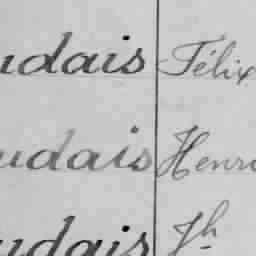 udais Félix
udais Henri
udais Jh